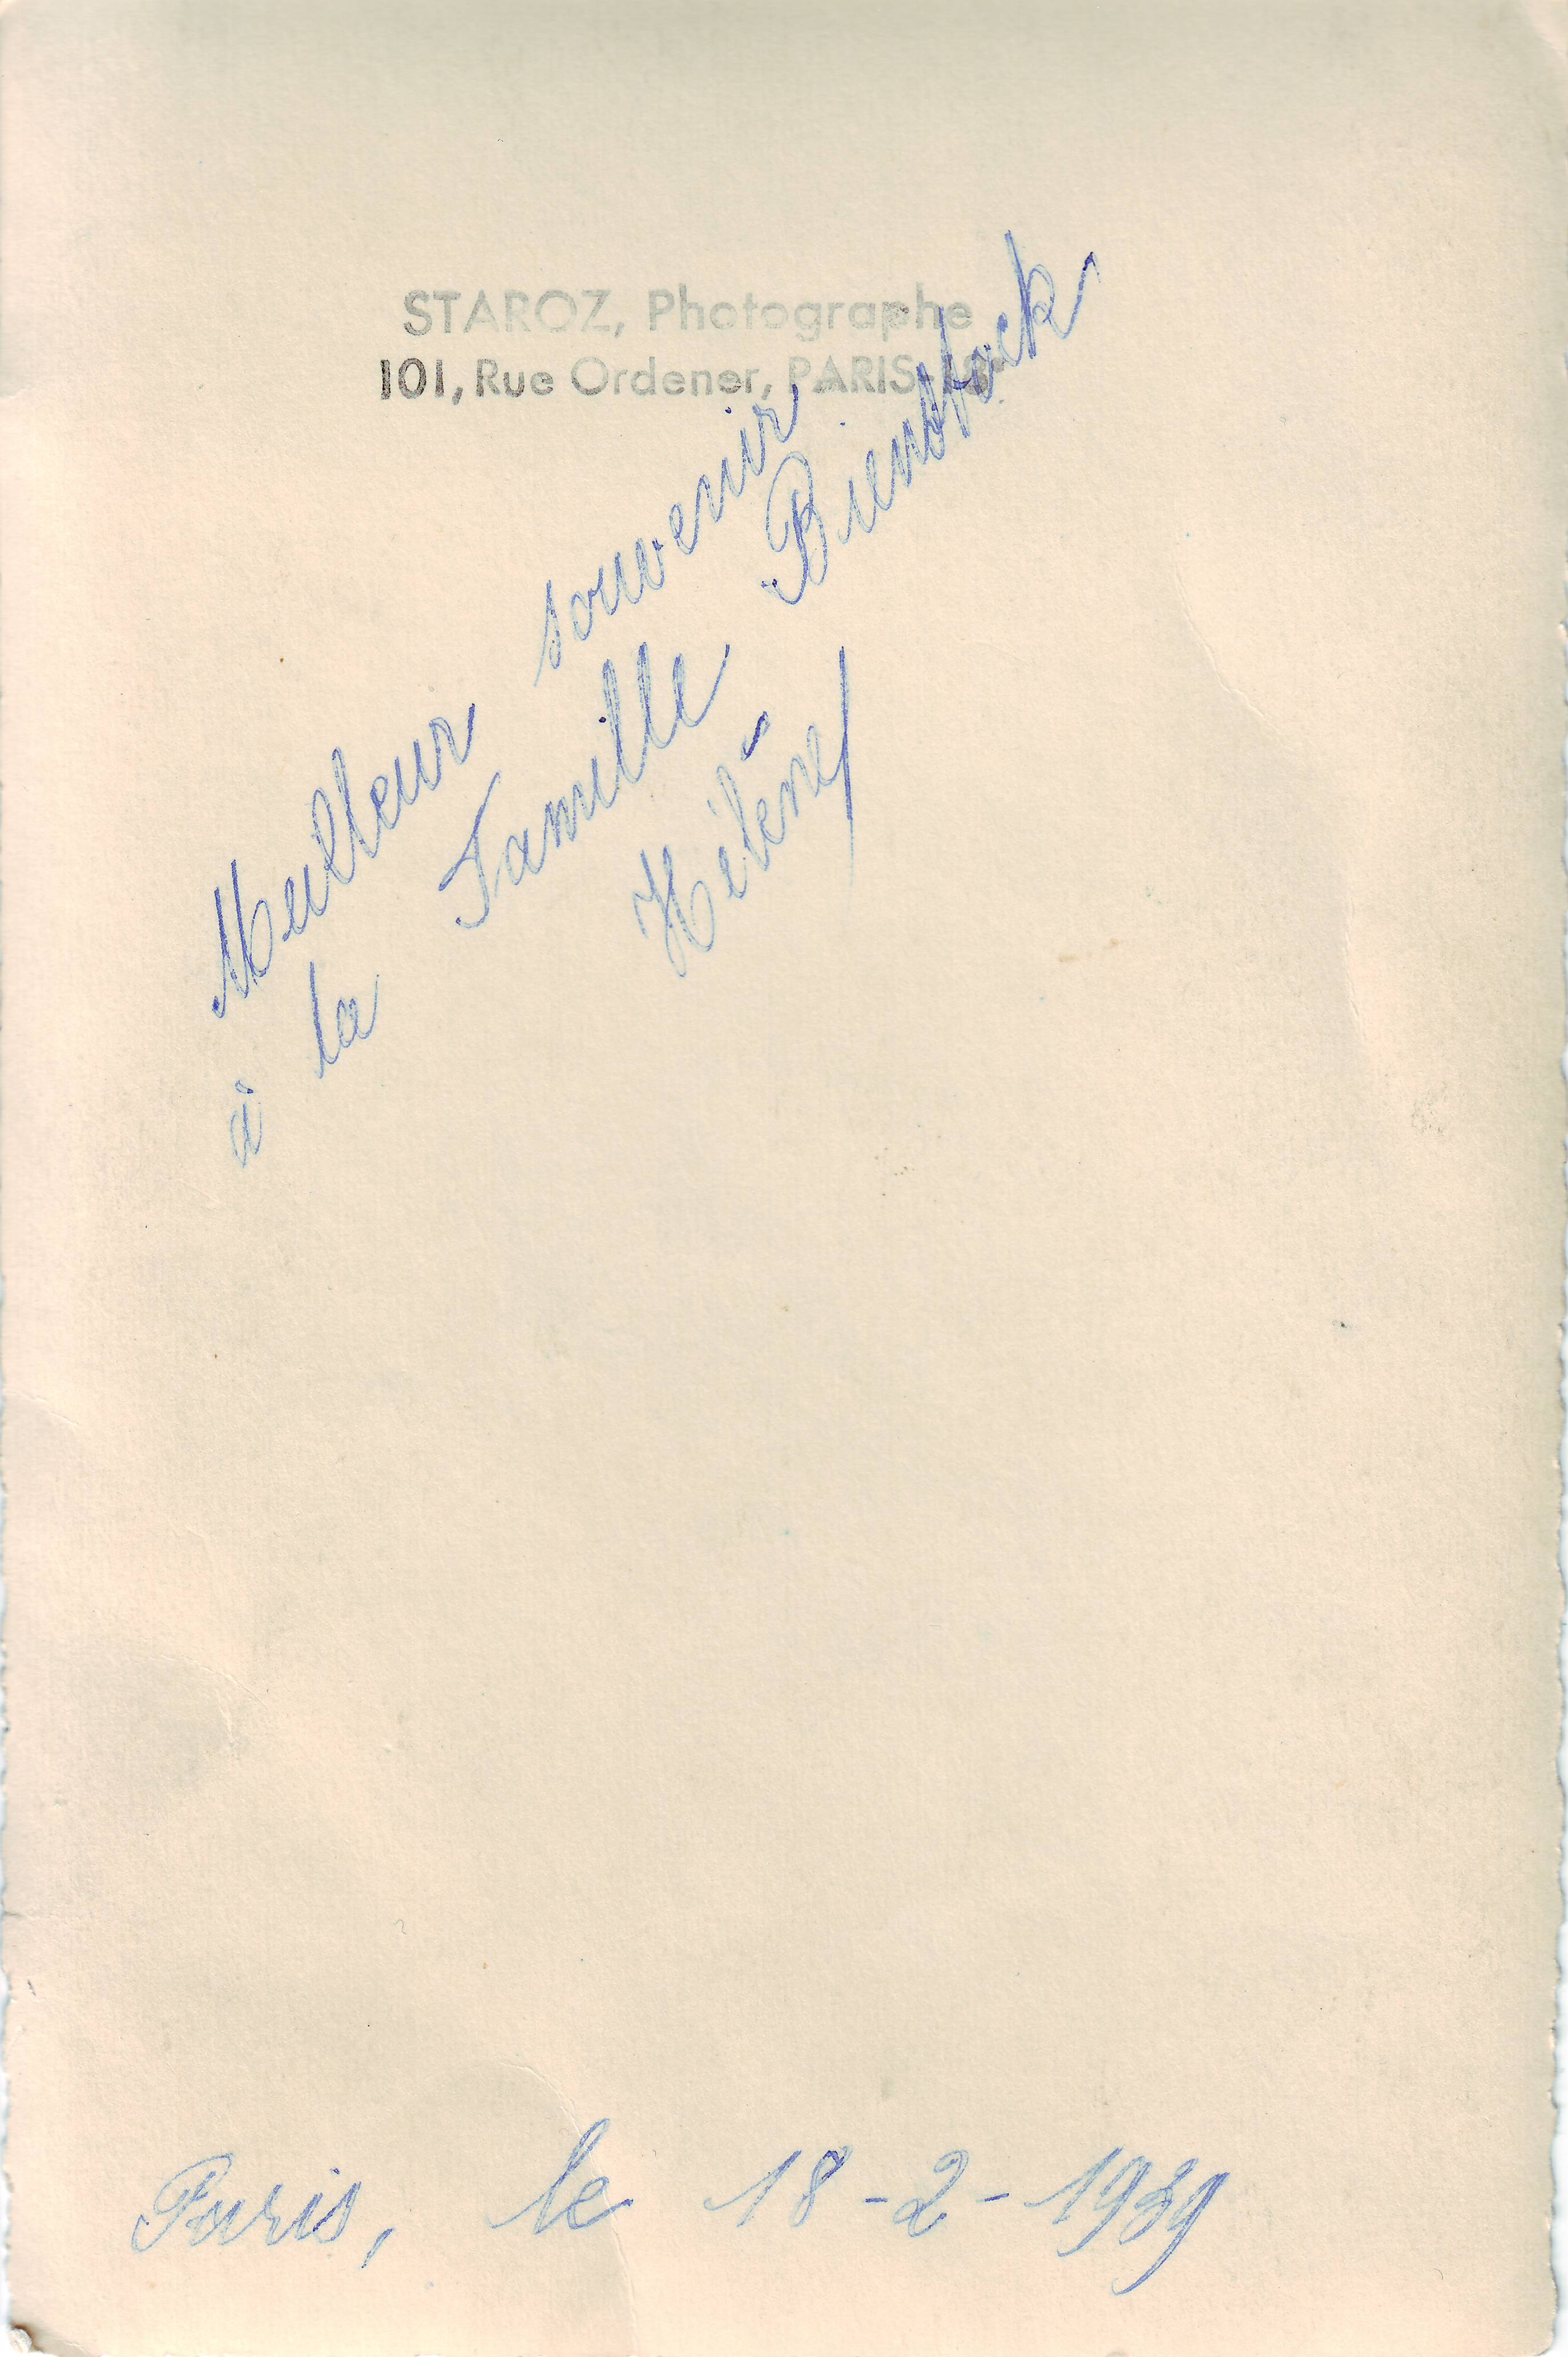 STAROZ, Photographe
101, Rue Ordener, PARIS-18e
Meilleur souvenir
à la Famille Bienstock
Hélène
Paris, le 18-2-1939